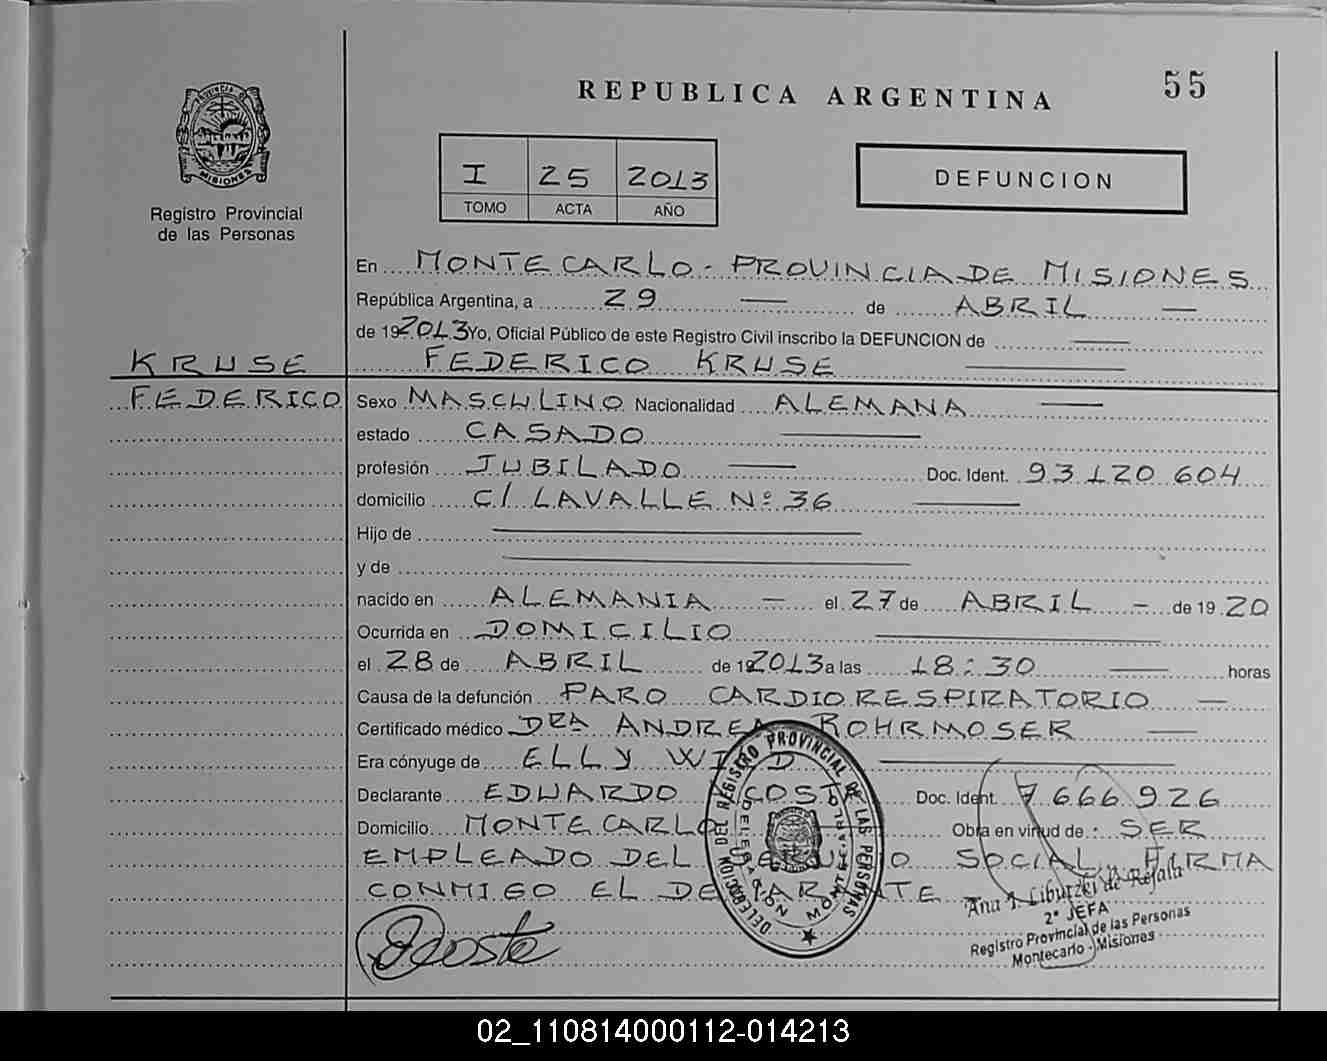 55
REPUBLICA ARGENTINA
PROVINCIA DE
MISIONES
Registro Provincial
de las Personas
I 25 2013
TOMO ACTA AÑO
DEFUNCION
En MONTECARLO - PROVINCIA DE MISIONES
República Argentina, a 29 — de ABRIL —
de 192013 Yo, Oficial Público de este Registro Civil inscribo la DEFUNCION de —
KRUSE FEDERICO KRUSE —
FEDERICO Sexo MASCULINO Nacionalidad ALEMANA —
estado CASADO —
profesión JUBILADO — Doc. Ident. 93 120 604
domicilio C/ LAVALLE Nº 36 —
Hijo de —
y de —
nacido en ALEMANIA — el 27 de ABRIL — de 19 20
Ocurrida en DOMICILIO —
el 28 de ABRIL de 192013 a las 18:30 — horas
Causa de la defunción PARO CARDIORESPIRATORIO —
Certificado médico DRA ANDREA ROHRMOSER —
Era cónyuge de ELLY —
Declarante EDUARDO Doc. Ident. 7 666 926
Domicilio MONTECARLO Obra en virtud de: SER
EMPLEADO DEL SOCIAL, FIRMA
CONMIGO EL DECLARANTE
DELEGACION DEL REGISTRO PROVINCIAL DE LAS PERSONAS
DELEGACION MONTECARLO
Ana I. Liburzki de Rejala
2ª JEFA
Registro Provincial de las Personas
Montecarlo - Misiones
02_110814000112-014213